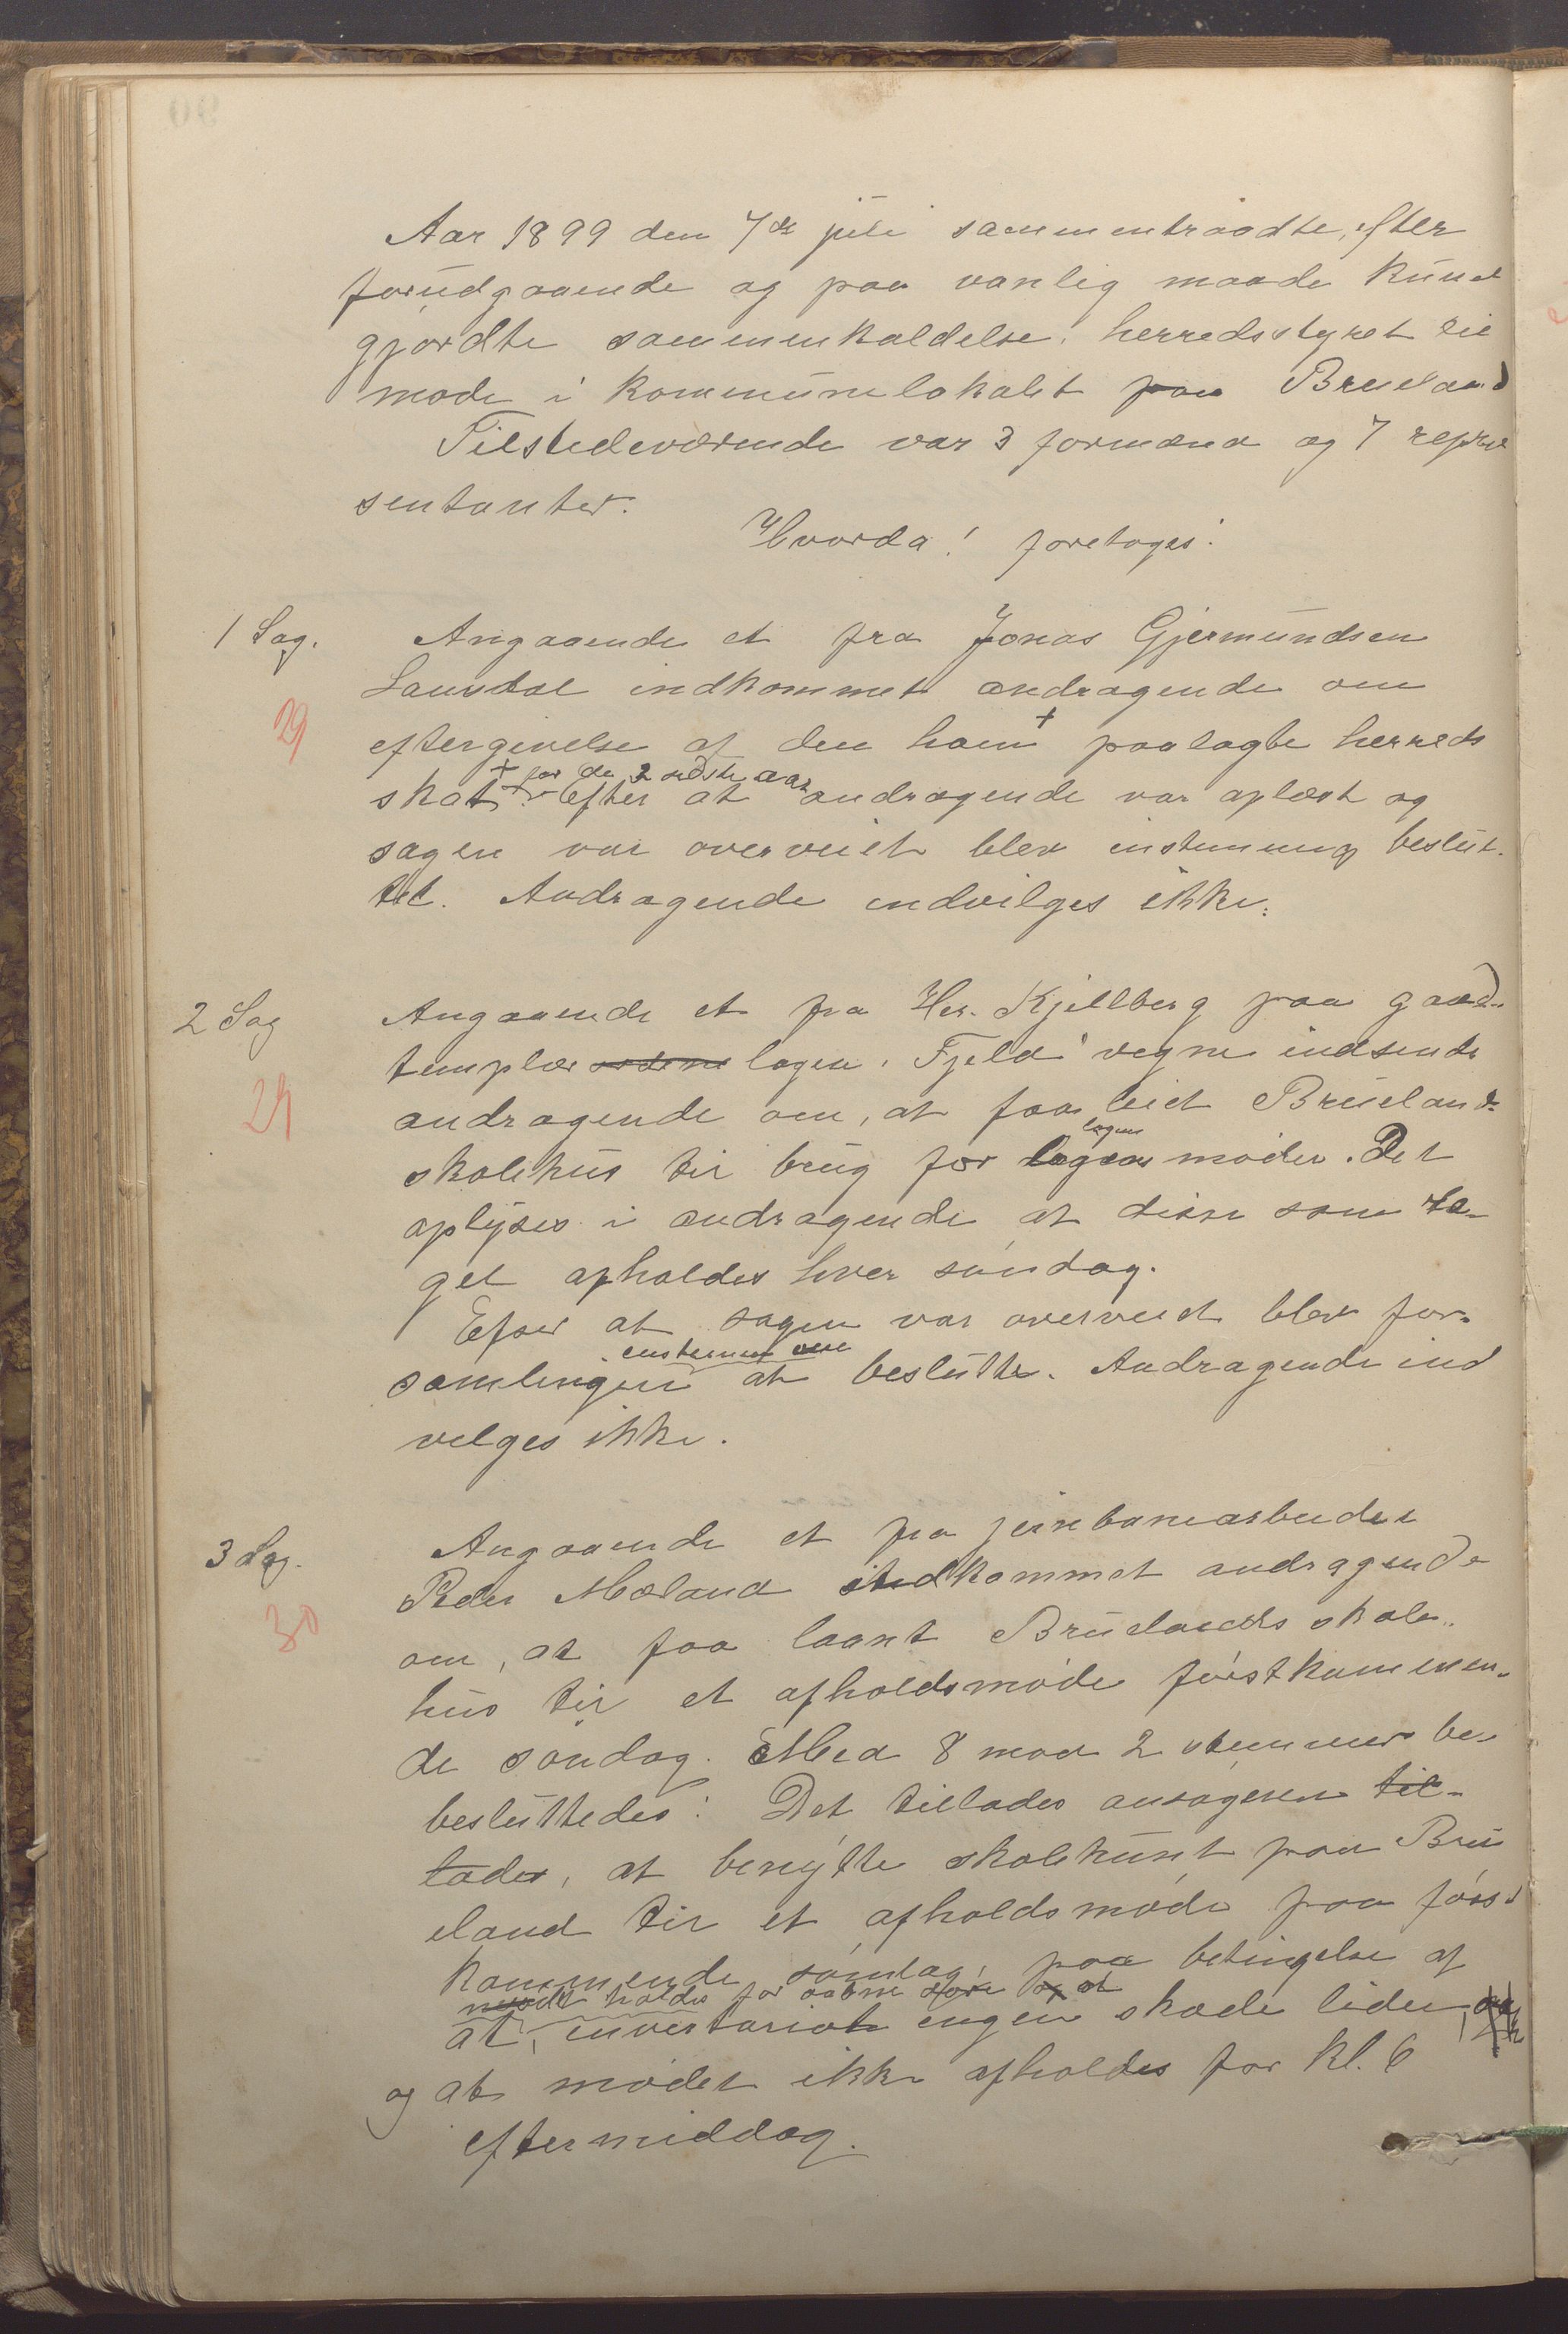 Aar 1899 den 7de juli sammentraadte, efter
forudgaaende og paa vanlig maade kund
gjordte sammenkaldelse, herredsstyret til
møde i kommunelokalet paa Brueland
Tilstedeværende var 3 formænd og 7 repræ
sentanter.
Hvorda! foretoges:
1 Sag. Angaaende et fra Jonas Gjermundsen
Lausdal indkommet andragende om
29 eftergivelse af den ham + paalagte herreds
+ for de 2 sidste aar
skat. Efter at andragende var oplæst og
sagen var overveiet blev enstemmig beslut-
tet. Andragende indvilges ikke.
2 Sag Angaaende et fra Hr. Kjellberg paa good-
templar logen, Fjeld vegne indsendt
29 andragende om, at faa leiet Bruelands
logens
skolehus til brug for møder. Det
oplyses i andragende at disse som re-
gel afholdes hver søndag.
Efter at sagen var overveiet blev for-
enstemmig
samlingen at beslutte. Andragende ind
vilges ikke.
3 Sag. Angaaende et fra jernbanearbeider
Peder Mæland indkommet andragende
30 om, at faa laant Bruelands skole-
hus til et afholdsmøde førstkommen-
de søndag. Med 8 mod 2 stemmer be-
besluttedes: Det tillades ansøgeren til-
lades, at benytte skolehuset paa Bru
eland til et afholdsmøde paa først
kommende søndag, paa betingelse af
mødet holdes for aabne døre og at
at, inventariet ingen skade lider,
og at mødet ikke afholdes før kl. 6
eftermiddag.